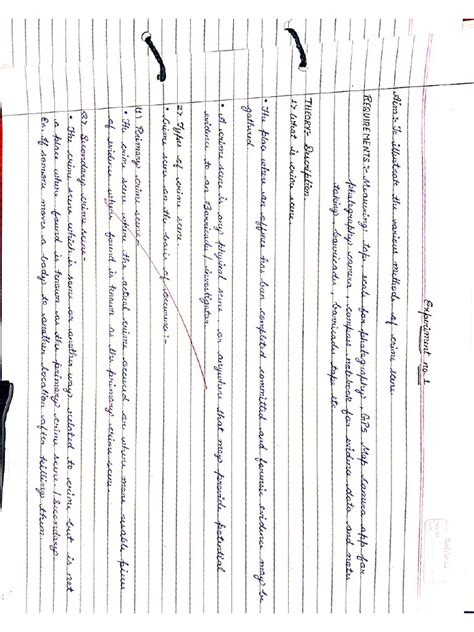 Experiment no. 1
Aim:- To illustrate the various methods of crime scene.
REQUIREMENTS:- Measuring tape, scale for photography, GPS Map camera app for
photography camera, compass notebook for evidence data and notes
taking, barricades, barricade tape etc.
THEORY:- Description.
1) What is crime scene.
• The place where an offence has been completed committed and forensic evidence may be
gathered.
• A crime scene is any physical scene or anywhere that may provide potential
evidence to an Barricade / investigator.
2) Types of crime scene.
• Crime scene on the basis of occurence:-
(1) Primary crime scene:-
The crime scene where the actual crime occured or where more usable pieces
of evidence which found is known as the primary crime scene.
2) Secondary crime scene:-
• The crime scene which is some or another way related to crime but is not
a place where found is known as the primary crime scene. / Secondary.
Ex. If someone moves a body to another location after killing them.